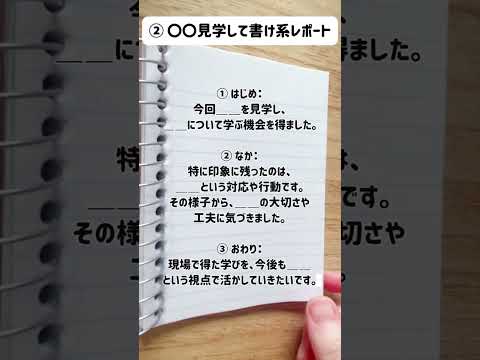 ② 〇〇見学して書け系レポート
① はじめ：
今回＿＿を見学し、
＿＿について学ぶ機会を得ました。
② なか：
特に印象に残ったのは、
＿＿という対応や行動です。
その様子から、＿＿の大切さや
工夫に気づきました。
③ おわり：
現場で得た学びを、今後も＿＿
という視点で活かしていきたいです。